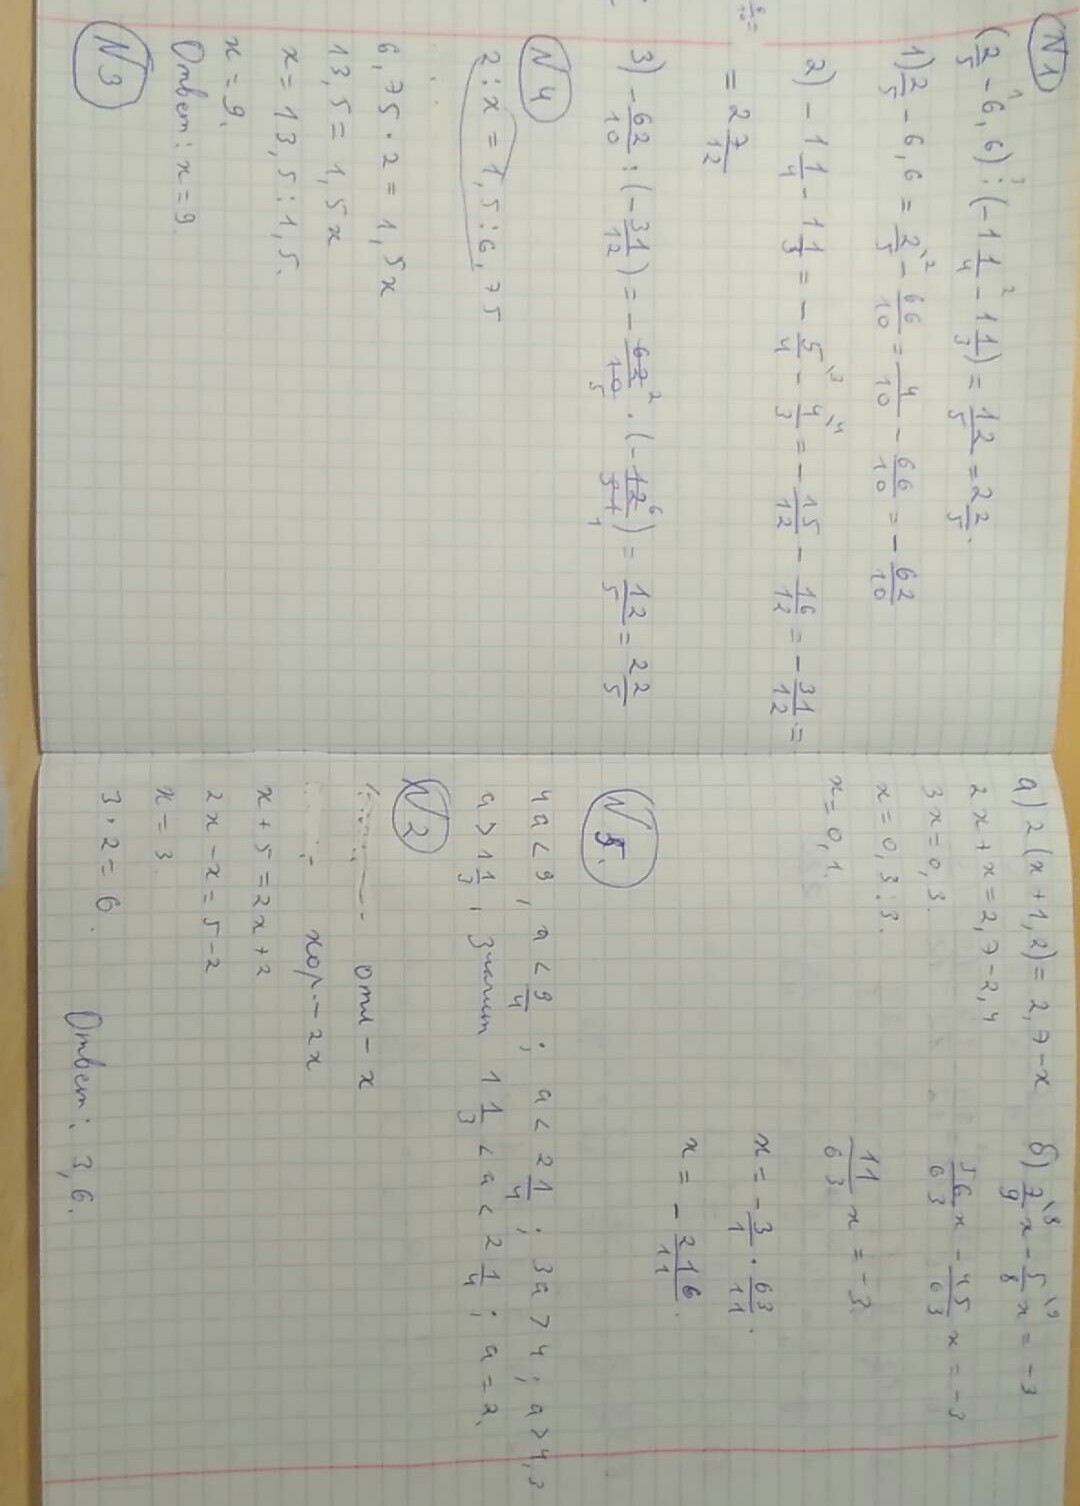 N1
(2/5 - 6,6) : (-1 1/4 - 1 1/3) = 12/5 = 2 2/5.
1) 2/5 - 6,6 = 2/5 - 66/10 = 4/10 - 66/10 = - 62/10
2) - 1 1/4 - 1 1/3 = - 5/4 - 4/3 = - 15/12 - 16/12 = - 31/12 =
= 2 7/12
3) - 62/10 : (- 31/12) = - 62/10 · (- 12/31) = 12/5 = 2 2/5
N4
2 : x = 1,5 : 6,75
6,75 · 2 = 1,5x
13,5 = 1,5x
x = 13,5 : 1,5.
x = 9.
Ответ: x = 9.
N3
а) 2(x + 1,2) = 2,7 - x
2x + x = 2,7 - 2,4
3x = 0,3.
x = 0,3 : 3.
x = 0,1.
б) 7/9 x - 5/8 x = -3
56/63 x - 45/63 x = -3
11/63 x = -3.
x = - 3/1 · 63/11.
x = - 216/11.
N5.
4a < 9, a < 9/4; a < 2 1/4; 3a > 4; a > 4,3
a > 1 1/3, значит 1 1/3 < a < 2 1/4; a = 2.
N2
отл - x
хор. - 2x
x + 5 = 2x + 2
2x - x = 5 - 2
x = 3.
3 · 2 = 6.
Ответ: 3,6.